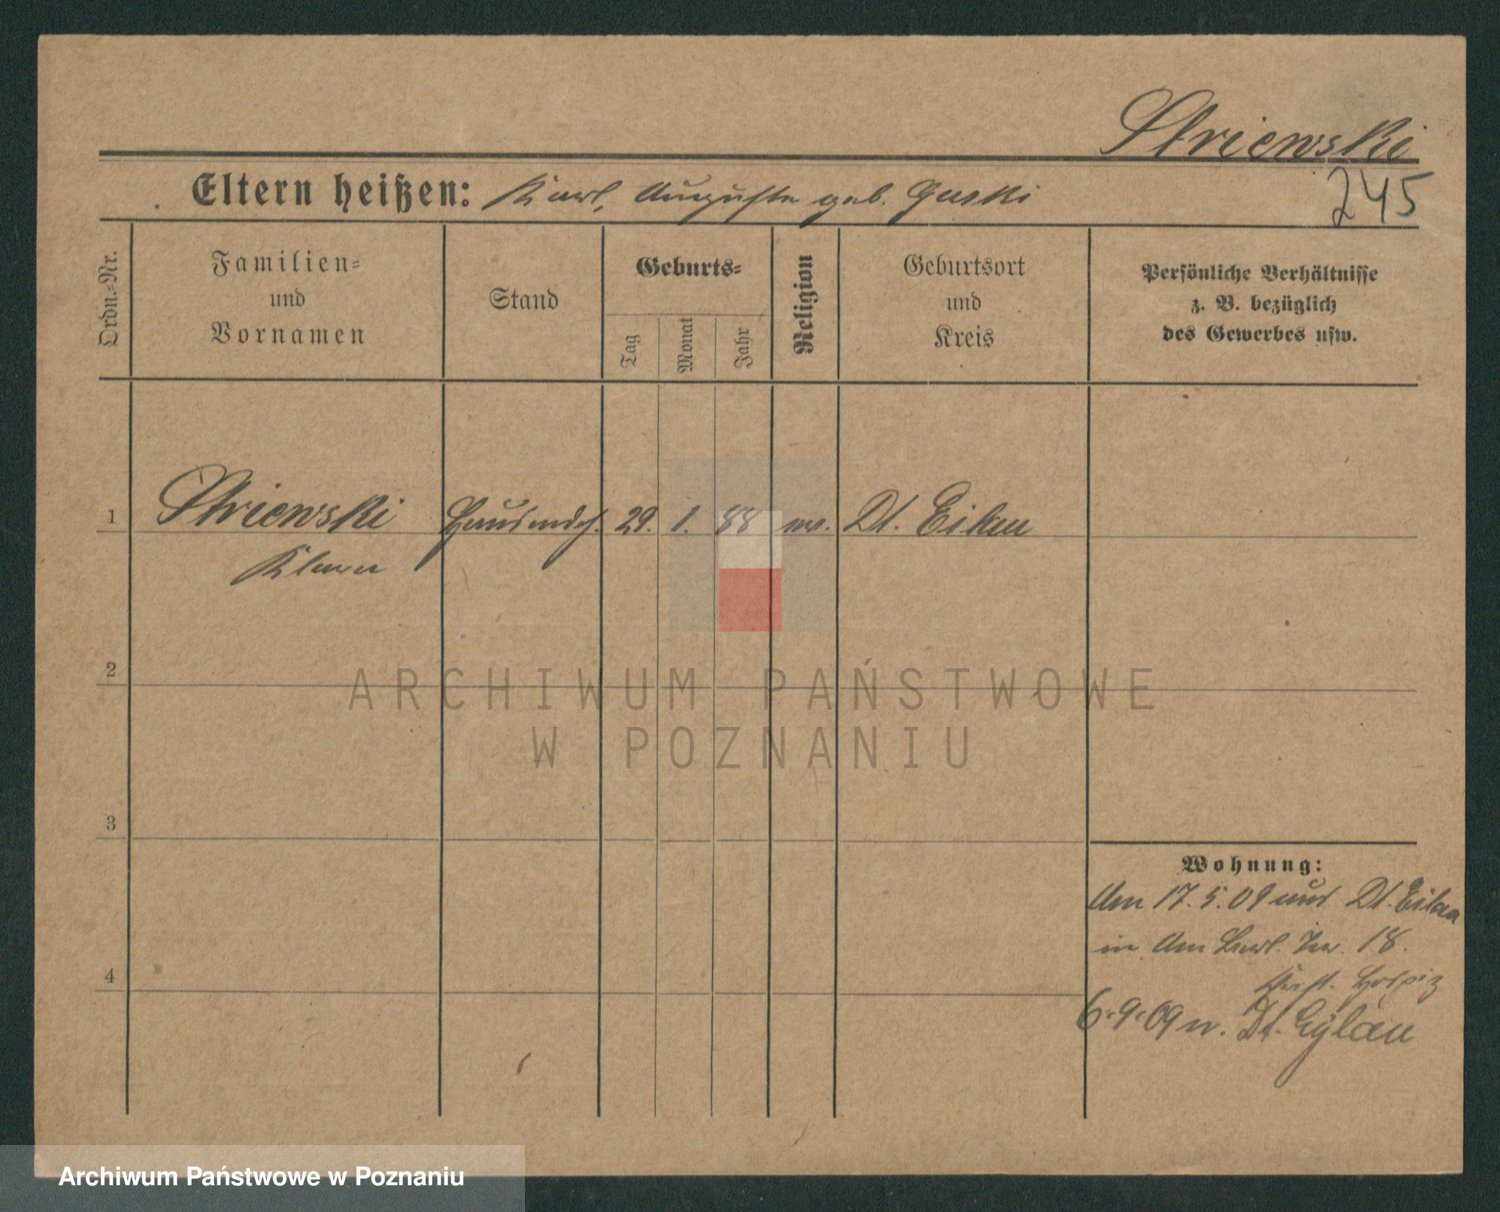 Striewski
Eltern heißen: Karl, Auguste geb. Guski
245
Ordn.-Nr.
Familien-
und
Vornamen
Stand
Geburts-
Tag
Monat
Jahr
Religion
Geburtsort
und
Kreis
Persönliche Verhältnisse
z. B. bezüglich
des Gewerbes usw.
1 Striewski 29. 1. 88 ev. Dt. Eilau
Klara
2
3
4
Wohnung:
Am 17. 5. 09 aus Dt. Eilau
in Am 18.
Hospiz
6.9.09 n. Dt. Eylau
ARCHIWUM PAŃSTWOWE
W POZNANIU
Archiwum Państwowe w Poznaniu